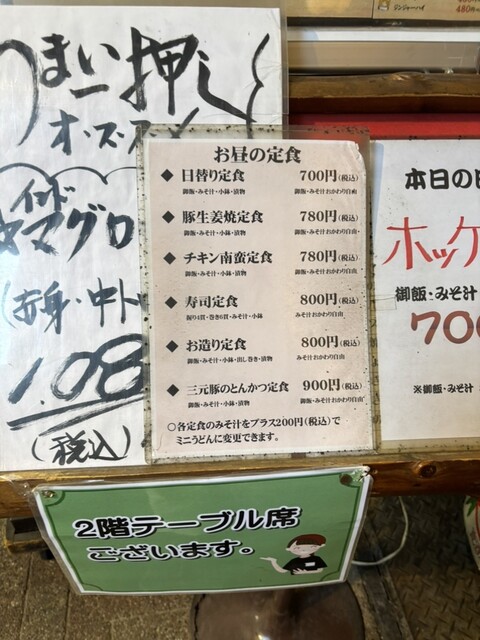 いまい一押し
オススメ
インド
マグロ
(赤身・中ト
1.08
(税込)
お昼の定食
◆ 日替り定食 700円(税込)
御飯・みそ汁・小鉢・漬物 御飯・みそ汁おかわり自由
◆ 豚生姜焼定食 780円(税込)
御飯・みそ汁・小鉢・漬物 御飯・みそ汁おかわり自由
◆ チキン南蛮定食 780円(税込)
御飯・みそ汁・小鉢・漬物 御飯・みそ汁おかわり自由
◆ 寿司定食 800円(税込)
握り4貫・巻き6貫・みそ汁・小鉢 みそ汁おかわり自由
◆ お造り定食 800円(税込)
御飯・みそ汁・小鉢・出し巻き・漬物 みそ汁おかわり自由
◆ 三元豚のとんかつ定食 900円(税込)
御飯・みそ汁・小鉢・漬物 御飯・みそ汁おかわり自由
○各定食のみそ汁をプラス200円(税込)で
ミニうどんに変更できます。
本日の
ホッケ
御飯・みそ汁
700
※御飯・みそ汁
2階テーブル席
ございます。
ジンジャーハイ
480円